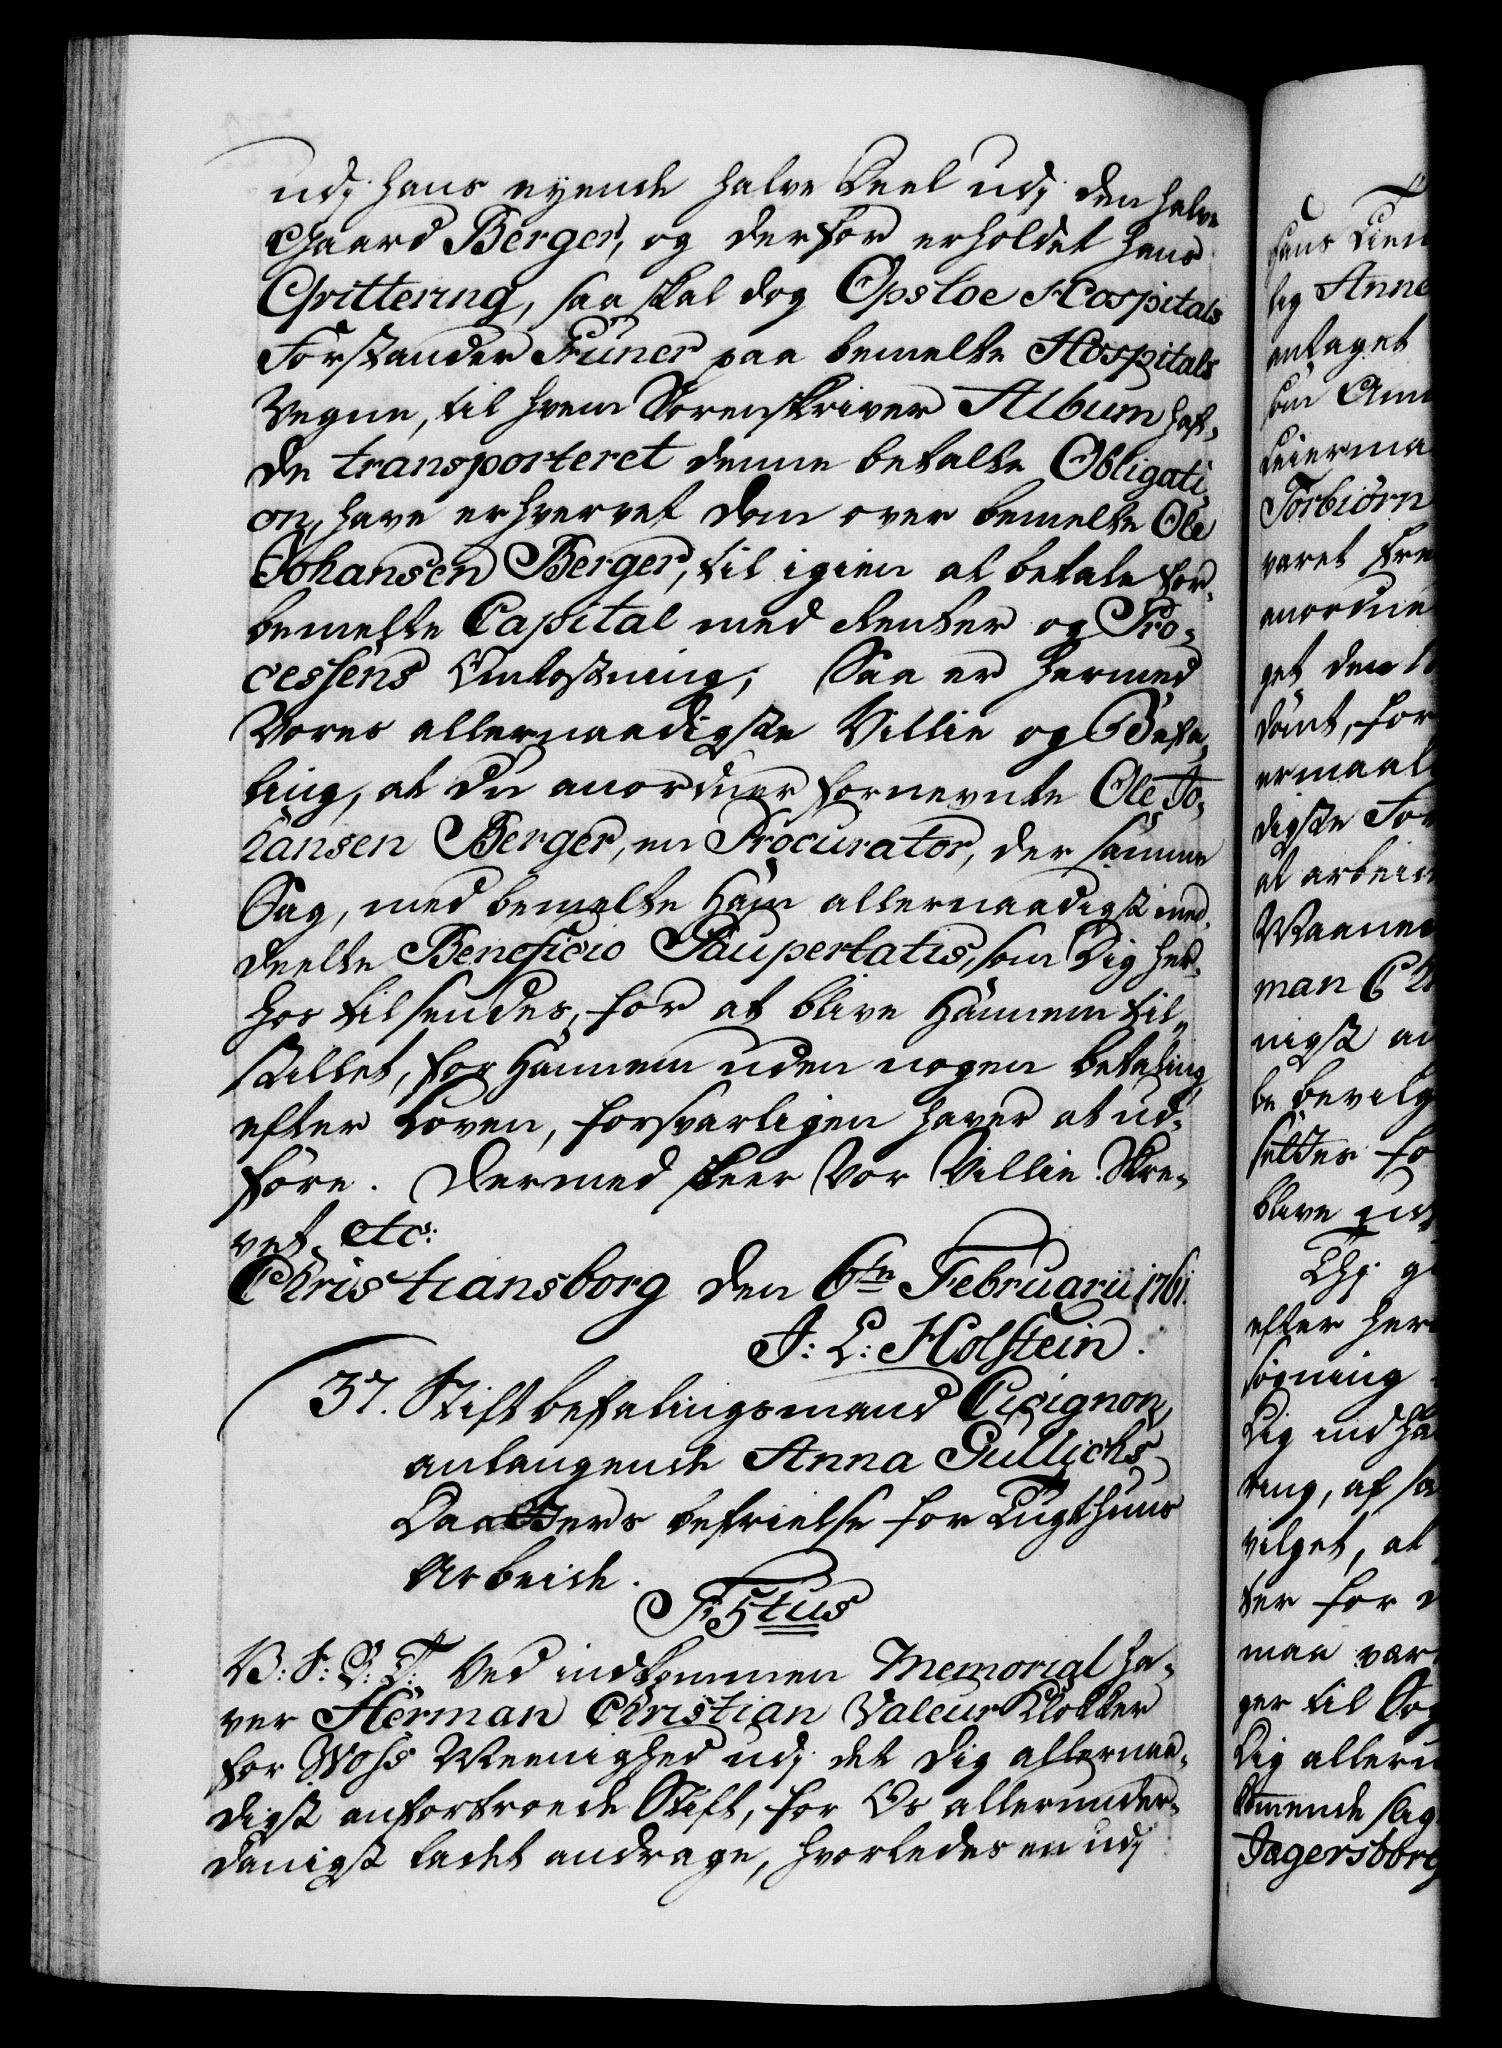 udj hans eyende halve Deel udj den halve
Gaard Berger, og derfor erholdet hans
Qvittering, saa skal dog Opsloe Hospitals
Forstander Früner paa bemelte Hospitals
Vegne, til hvem Sorenskriver Album haf-
de transporteret denne betalte Obligati-
on, have erhvervet Dom over bemelte Ole
Johansen Berger, til igien at betale for-
bemelte Capital med Renter og Pro-
cessens Omkostning; Saa er hermed
Vores allernaadigste Villie og Befa-
ling, at du anordner fornevnte Ole Jo-
hansen Berger, en Procurator, der samme
Sag, med bemelte Ham allernaadigst med-
deelte Beneficio Paupertatis, som Dig her-
hos tilsendes, for at blive Hannem til-
stillet, for Hannem uden nogen betaling
efter Loven, forsvarligen haver at ud-
føre. Dermed skeer Vor Villie. Skre-
vet etc:
Christiansborg den 6te Februarii 1761.
J: L: Holstein.
37. Stiftbefalingsmand Cicignon,
anlangende Anna Gullichs
Daatters befrielse for Tugthuus
Arbeide.
F: 5tus
V: F: G: T: Ved indkommen Memorial ha-
ver Herman Christian Valeur Klokker
for Woss Meenighed udj det dig allernaa-
digst anfortroede Stift, for Os allerunder-
danigst ladet andrage, hvorledes en udj
hans Tien
lig Anne
antaget
som Ann
Leierma
Torbiørn
varet fre
anordne
get den
dømt, for
ermaal
digste For
at arbeid
Maaned
man Ch
nigst an
be bevilg
selder fo
blive
Thj gi
efter her
søgning
Dig indha
ring, af sa
vilget, at
ter for d
maa vær
ger til Sog
Dig alleru
kommende slig
Jagersborg